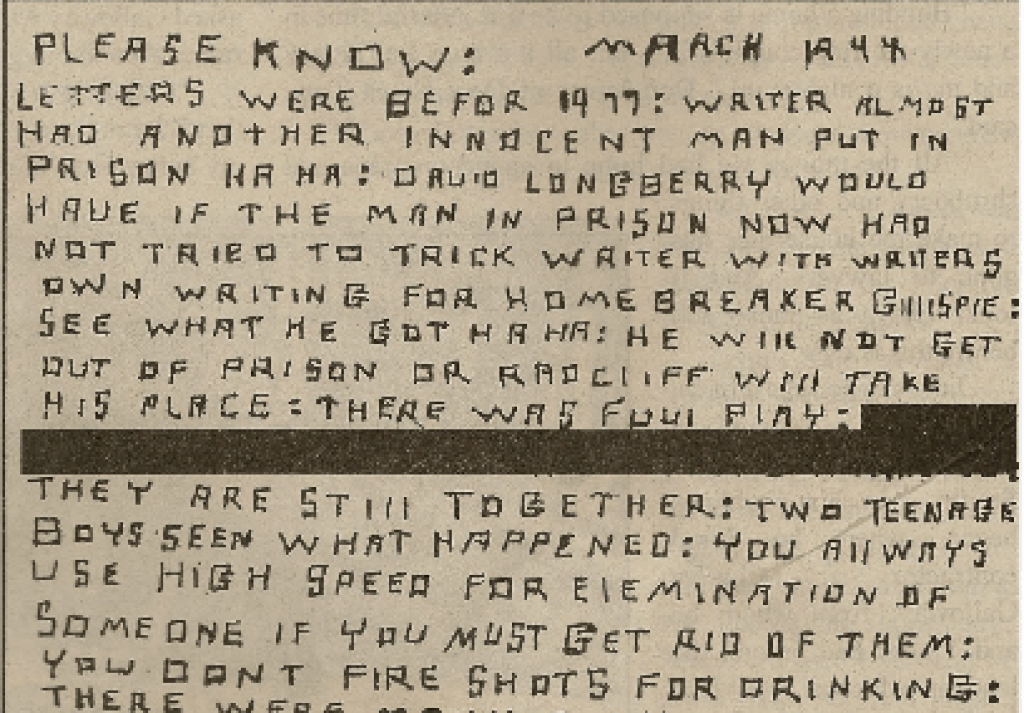 PLEASE KNOW: MARCH 1944
LETTERS WERE BEFOR 1977: WRITER ALMOST
HAD ANOTHER INNOCENT MAN PUT IN
PRISON HA HA: DAVID LONGBERRY WOULD
HAVE IF THE MAN IN PRISON NOW HAD
NOT TRIED TO TRICK WRITER WITH WRITERS
OWN WRITING FOR HOMEBREAKER GILLISPIE:
SEE WHAT HE GOT HA HA: HE WILL NOT GET
OUT OF PRISON OR RADCLIFF WILL TAKE
HIS PLACE: THERE WAS FOUL PLAY:
THEY ARE STILL TOGETHER: TWO TEENAGE
BOYS SEEN WHAT HAPPENED: YOU ALLWAYS
USE HIGH SPEED FOR ELEMINATION OF
SOMEONE IF YOU MUST GET RID OF THEM:
YOU DONT FIRE SHOTS FOR DRINKING:
THERE WERE